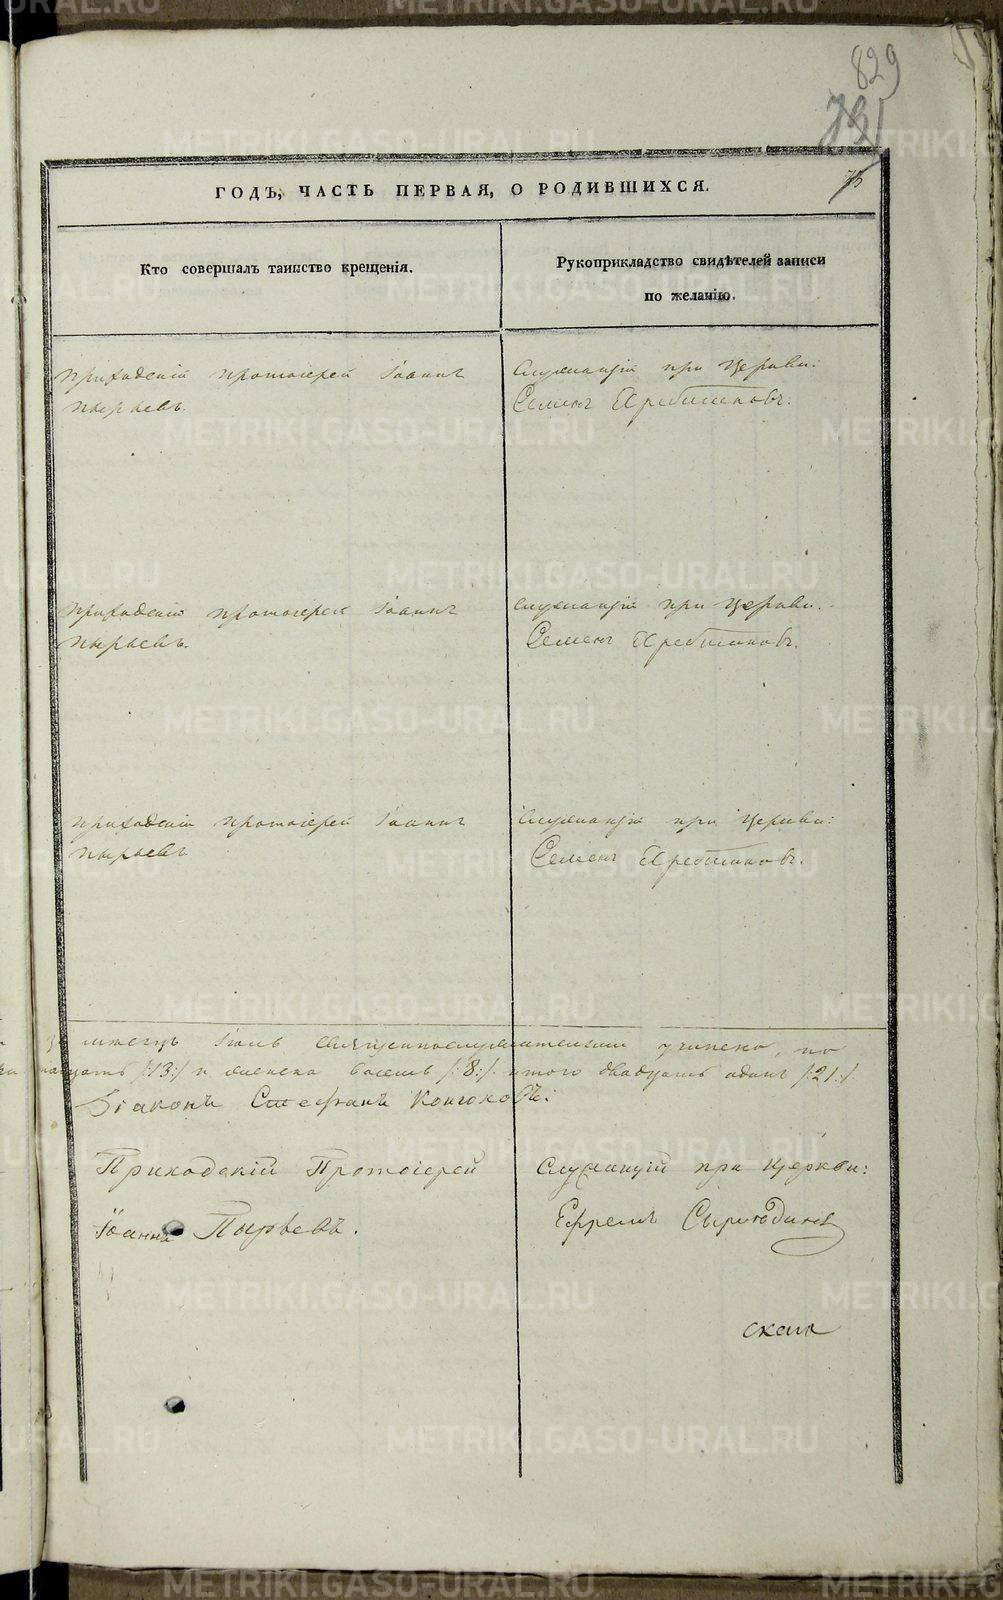 829
731
75
ГОДЪ, ЧАСТЬ ПЕРВАЯ, О РОДИВШИХСЯ.
Кто совершалъ таинство крещенія.
Рукоприкладство свидѣтелей записи
по желанію.
приходскій протоіерей Іоаннъ
Пырьевъ.
Служащій при церкви:
Семенъ Хребтиковъ.
приходскій протоіерей Іоаннъ
Пырьевъ.
служащій при церкви.
Семенъ Хребтиковъ.
приходскій протоіерей Іоаннъ
Пырьевъ
Служащій при церкви:
Семенъ Хребтиковъ.
мѣсяцъ священнослужителями учинено, по
/:13:/ и женска восемь /:8:/. итого двадцать одинъ /:21:/
Діаконъ Стефанъ
Приходскій Протоіерей
Іоаннъ Пырьевъ.
Служащій при церкви:
Ефремъ
METRIKI.GASO-URAL.RU